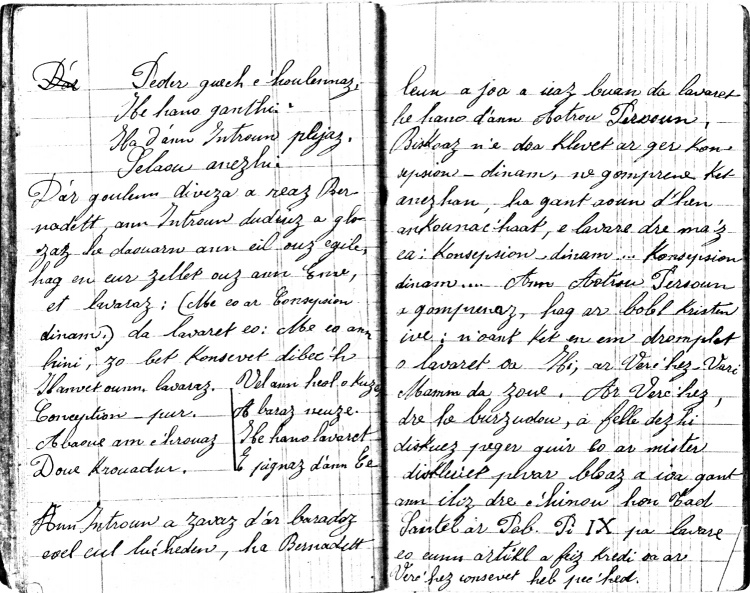 Peder guech e c'houlennaz.
He hano ganthi:
Ha d'ann Introun plijaz.
Selaou anezhi.
D'ár goulenn diveza a reaz Ber-
nadett, ann Introun dudiuz a glo-
zaz he daouarn ann eil ouz egile,
hag en eur zellet ouz ann Env,
et lavaraz: (Me eo ar Consepsion
dinam.) da lavaret eo: Me eo ann
hini, zo bet Konsevet dibec'h
Hanvet ounn. lavaraz.
Conception - pur.
Abaoue am c'hrouaz
Doue Krouadur.
Vel ann heol o kuza
A baraz neuze.
He hano lavaret
E pignaz d'ann Ee
Ann Introun a zavaz d'ár baradoz
evel eul luc'heden, ha Bernadett
leun a joa a ieaz buan da lavaret
he hano d'ann Aotrou Persoun.
Biskoaz n'e doa Klevet ar ger Kon-
sepsion - dinam, ne gomprene Ket
anezhan, ha gant aoun d'hen
ankounac'haat, e lavare dre ma'z
ea: Konsepsion dinam... Konsepsion
dinam.... Ann Aotrou Persoun
a gomprenaz, hag ar bobl Kristen
ive; n'oant Ket en em dromplet
o lavaret oa Hi, ar Verc'hez-Vari
Mamm da Zoue. Ar Verc'hez,
dre he burzudou, a felle dezhi
diskuez peger guir eo ar mister
diskleriet pevar bloaz a ioa gant
ann iliz dre c'hinou hon Tad
Santel ar Pab. Pi IX pa lavare
eo eunn artikl a feiz kredi oa ar
Verc'hez consevet heb pec'hed.